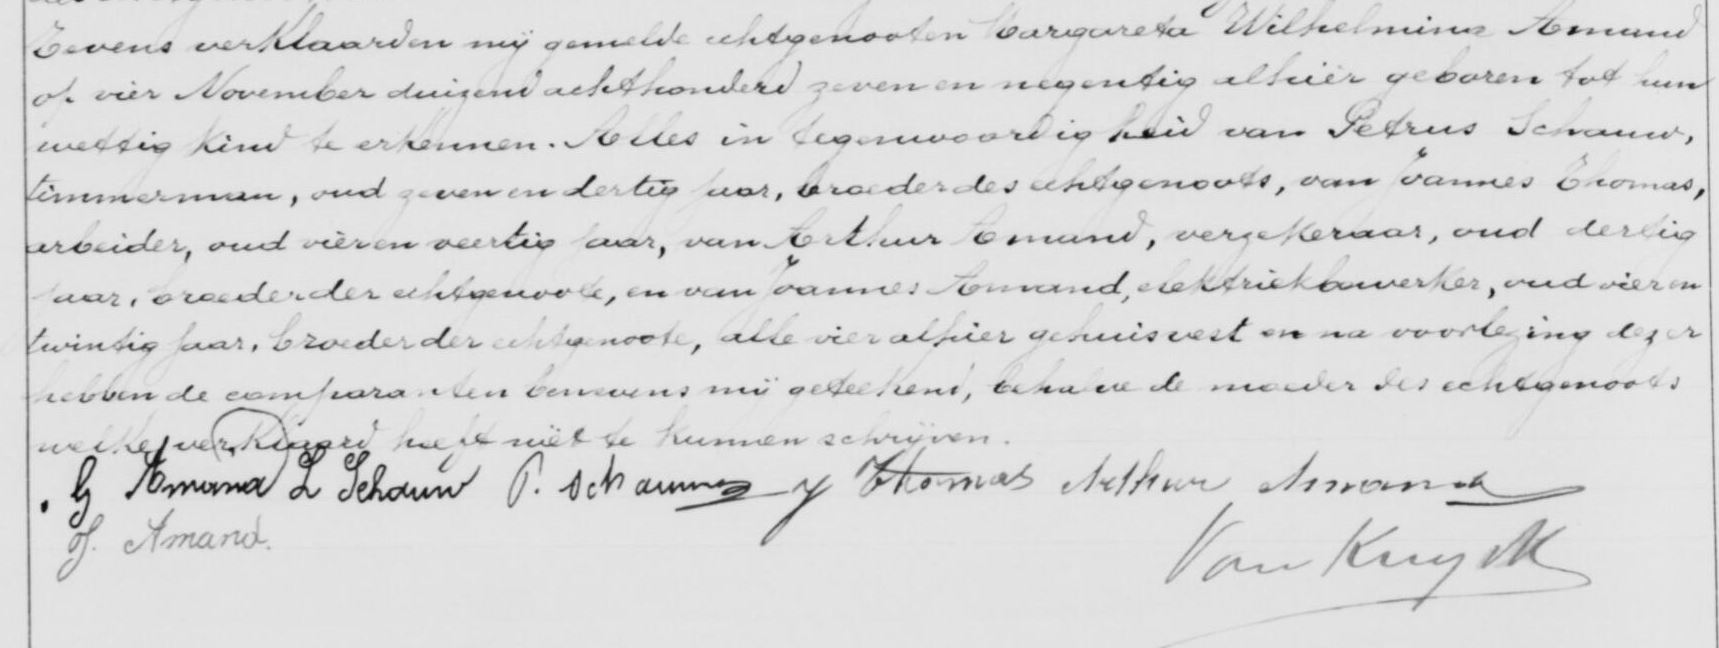 Tevens verklaarden mij gemelde echtgenooten Margareta Wilhelmina Amand
op vier November duizend achthonderd zeven en negentig alhier geboren tot hun
wettig kind te erkennen. Alles in tegenwoordigheid van Petrus Schauw,
timmerman, oud zeven en dertig jaar, broeder des echtgenoots, van Joannes Thomas,
arbeider, oud vier en veertig jaar, van Arthur Amand, verzekeraar, oud dertig
jaar, broeder der echtgenoote, en van Joannes Amand, elektriekbewerker, oud vier en
twintig jaar, broeder der echtgenoote, alle vier alhier gehuisvest en na voorlezing dezer
hebben de comparanten benevens mij geteekend, behalve de moeder des echtgenoots
welke verklaard heeft niet te kunnen schrijven.
G Amand L Schauw P. Schauw J Thomas Arthur Amand
J. Amand.
Van Kuyck